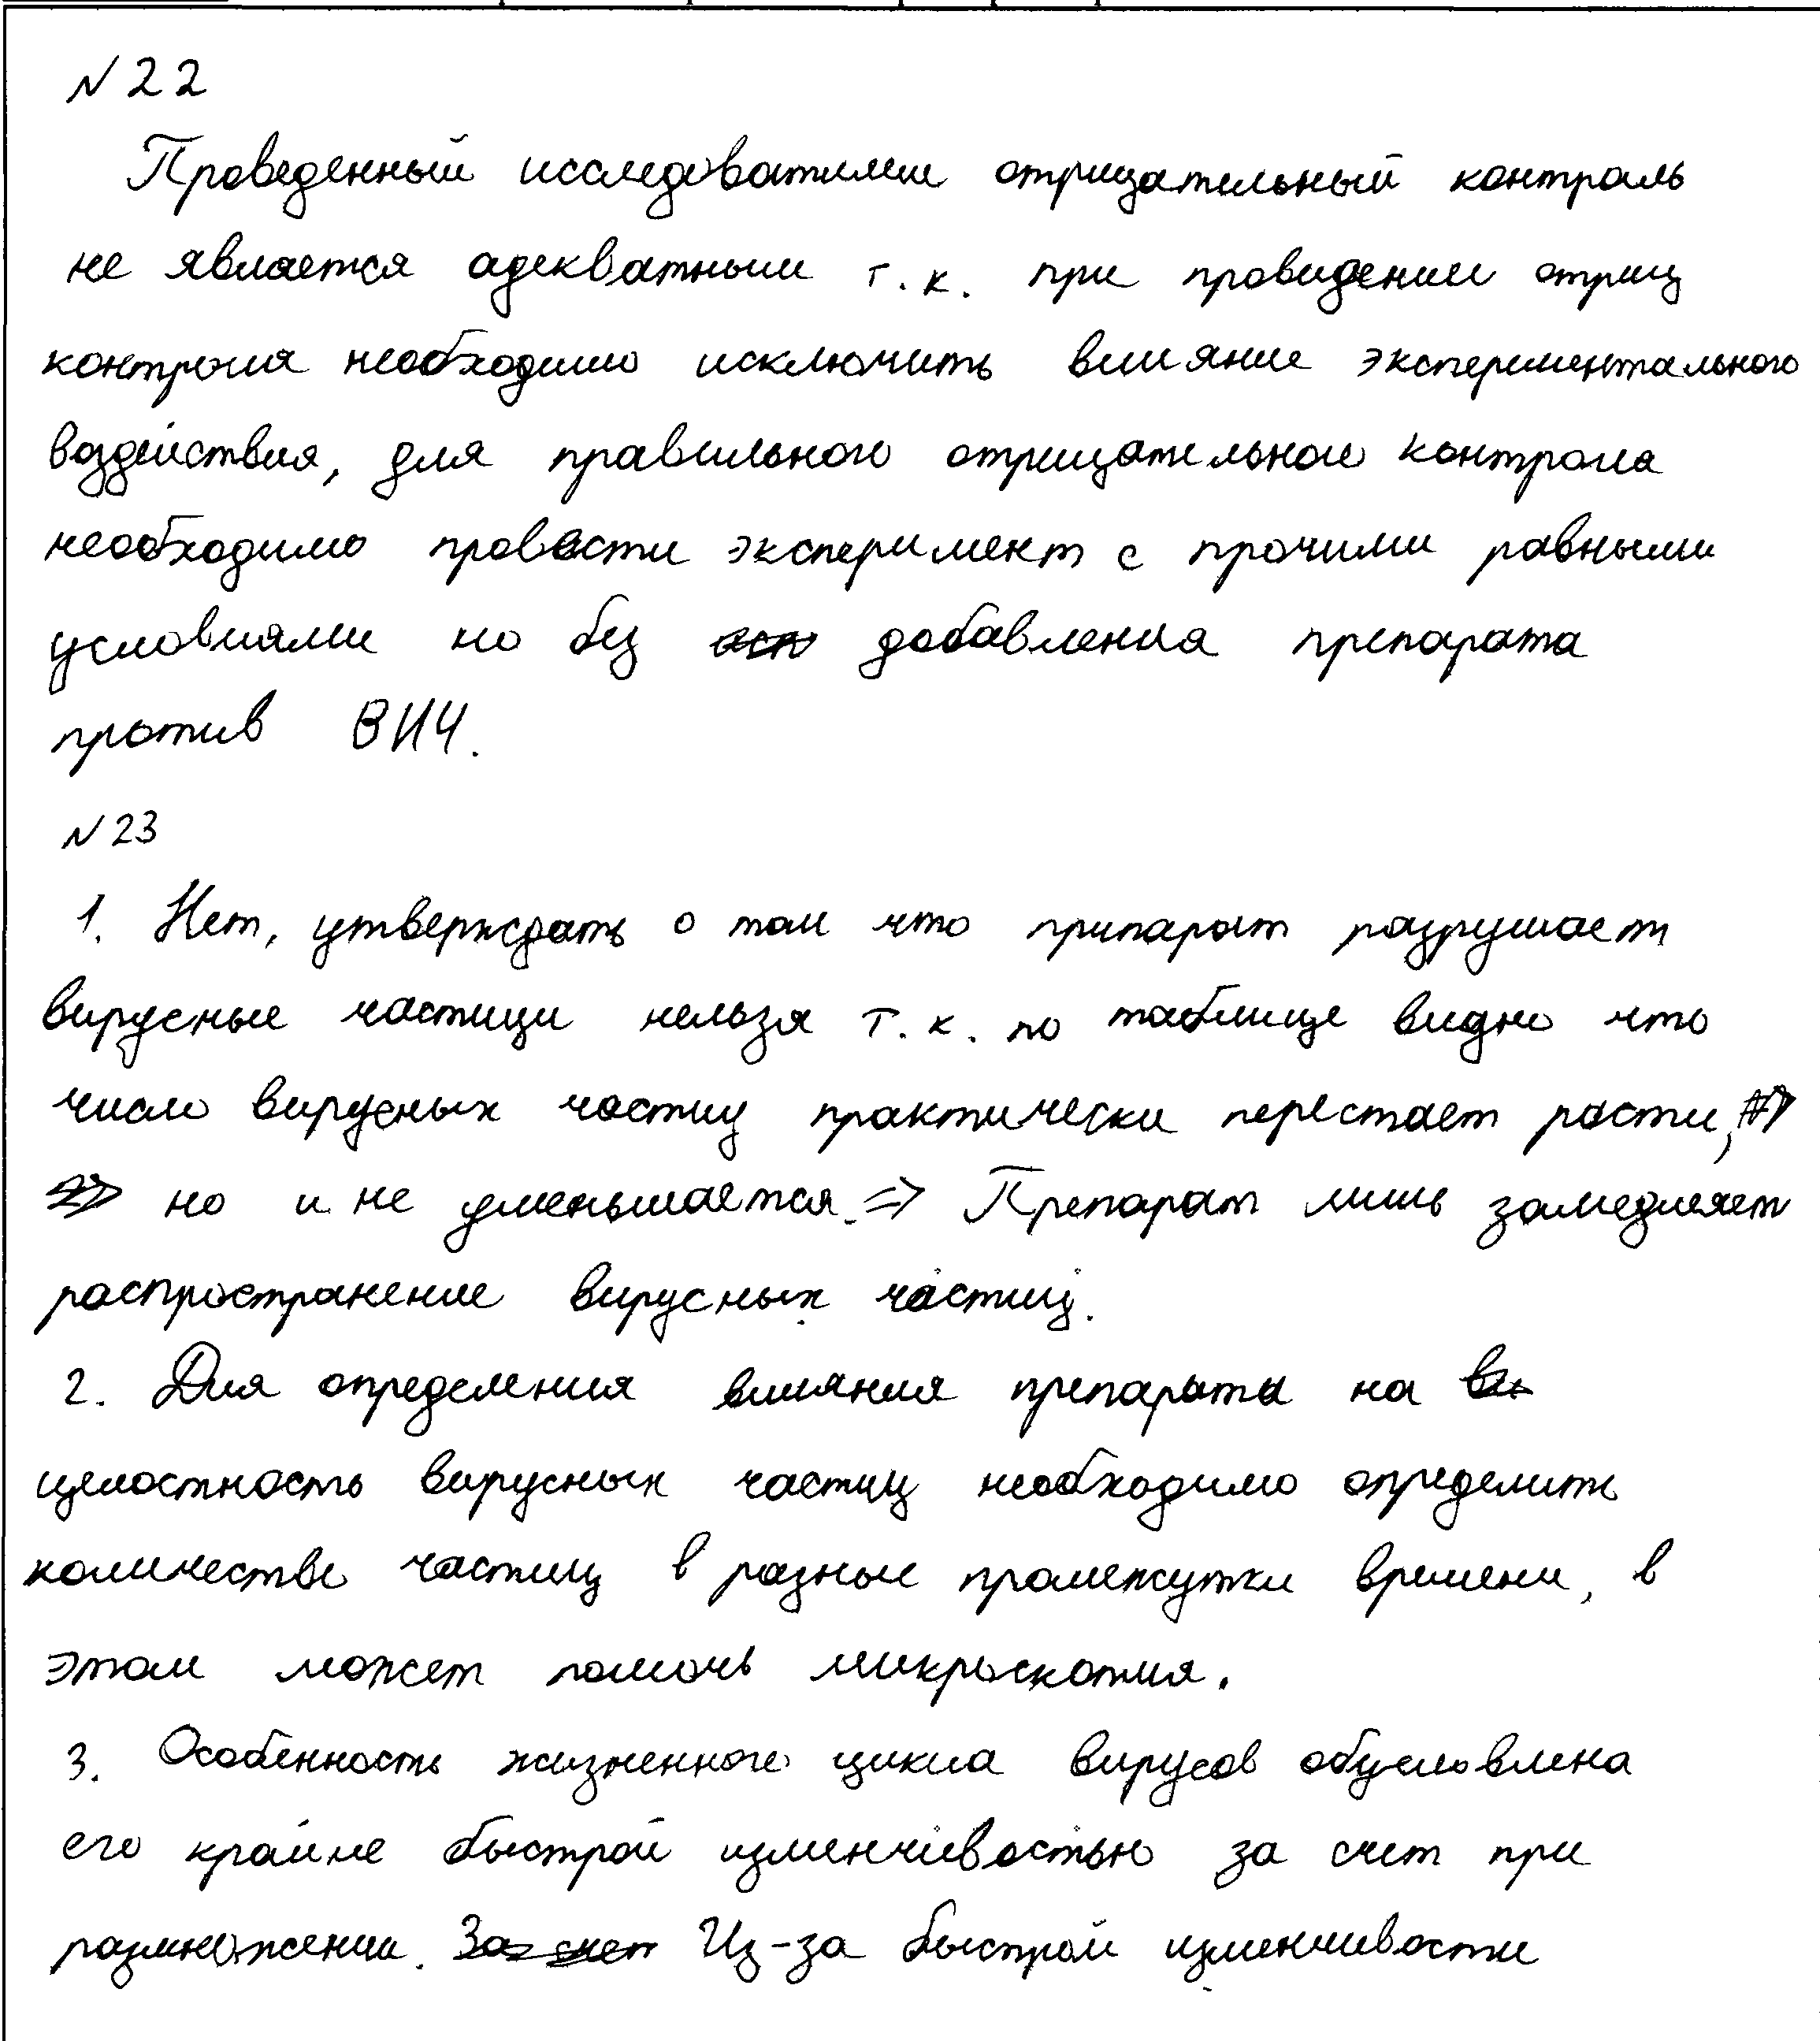 №22
Проведенный исследователями отрицательный контроль
не является адекватным т.к. при проведении отриц
контроля необходимо исключить влияние экспериментального
воздействия, для правильного отрицательного контроля
необходимо провести эксперимент с прочими равными
условиями но без добавления препарата
против ВИЧ.
№23
1. Нет, утверждать о том что припарат разрушает
вирусные частицы нельзя т.к. по таблице видно что
число вирусных частиц практически перестает расти,
но и не уменьшается. => Препарат лишь замедляет
распространение вирусных частиц.
2. Для определения влияния препарата на
целостность вирусных частиц необходимо определить
количество частиц в разные промежутки времени, в
этом может помочь микроскопия.
3. Особенность жизненного цикла вирусов обусловлена
его крайне быстрой изменчивостью за счет при
размножении. Из-за быстрой изменчивости